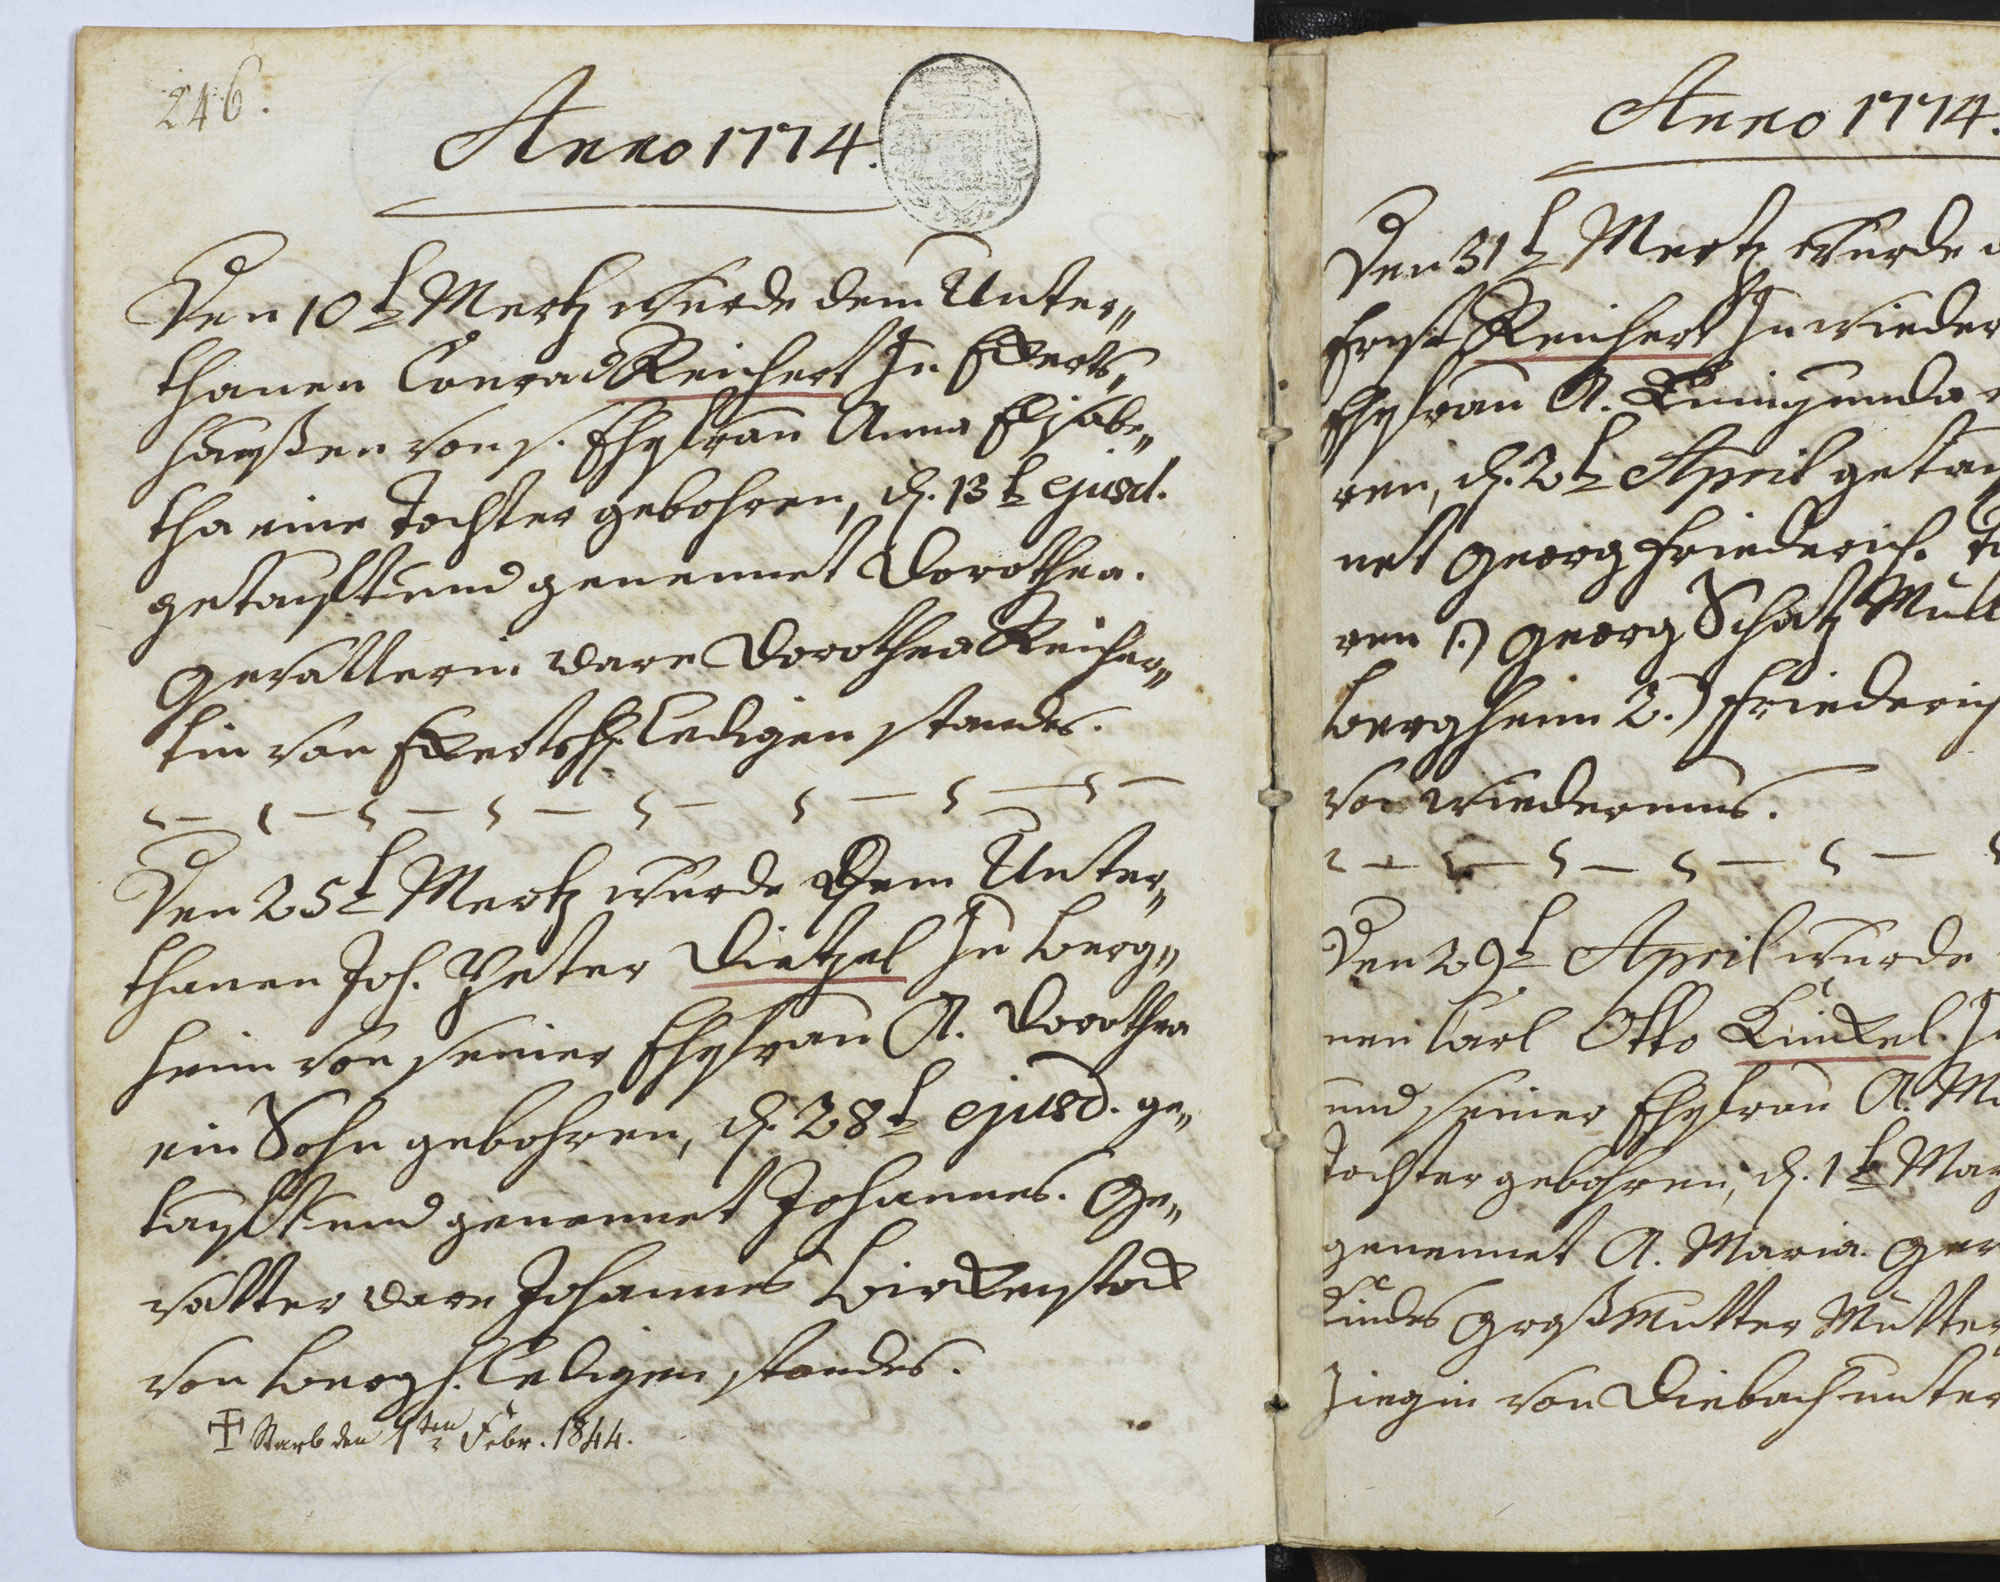 246.
Anno 1774.
Den 10t Mertz wurde dem Unter„
thanen Conrad Reichert zu Eckerts„
haußen von s. Ehefrau Anna Elisabe„
tha eine Tochter gebohren, d. 13t ejusd.
getaufft und genennet Dorothea.
Gevatterin ware Dorothea Reicher„
tin von Eckertsh. ledigen standes.
Den 25t Mertz wurde Dem Unter„
thanen Joh. Peter Dietzel zu Berg„
heim von seiner Ehefrau A. Dorothea
ein Sohn gebohren, d. 28t ejusd. ge„
taufft und genennet Johannes. Ge„
vatter ware Johannes Birckenstock
von Bergh. ledigen standes.
Starb den 1ten Febr. 1844.
Anno 1774.
Den 31t Mertz wurde
Ernst Reichert zu Wieder
Ehefrau A. Kunigunda
ren, d. 2t April getau
net Georg Friederich.
ren 1.) Georg Schatz Müll
Bergheim 2.) Friederich
von Wiedermus.
Den 29t April wurde
nen Carl Otto Künckel. Z
und seiner Ehefrau A. Ma
Tochter gebohren, d. 1t May
genennet A. Maria. Gev
Kindes Großmutter Mutter
Ziegin von Diebach unter